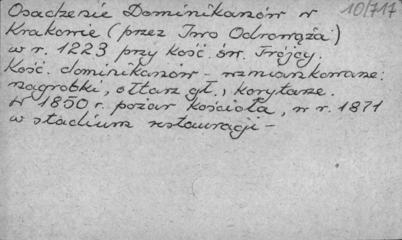 10/717
Osadzenie Dominikanów w
Krakowie (przez Iwo Odrowąża)
w r. 1223 przy kość. św. Trójcy.
Kość. dominikanów - wzmiankowane:
nagrobki, ołtarz gł., korytarze.
W 1850 r. pożar kościoła, w r. 1871
w stadium restauracji -